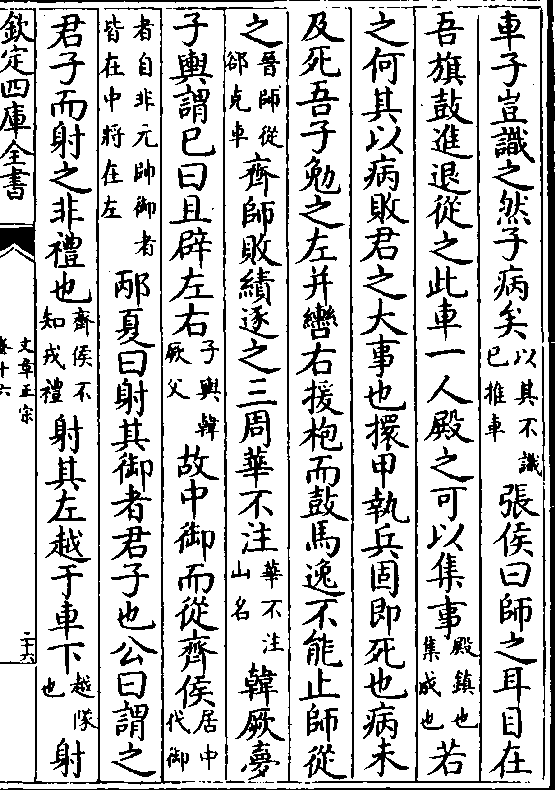 車子豈識之然子病矣以其不識已推車張侯曰師之耳目在
吾旗鼓進退從之此車一人殿之可以集事殿鎮也集成也若
之何其以病敗君之大事也擐甲執兵固即死也病未
及死吾子勉之左并轡右援枹而鼓馬逸不能止師從
之晉師從郤克車齊師敗績逐之三周華不注華不注山名韓厥夢
子輿謂已曰且辟左右子輿韓厥父故中御而從齊侯居中代御
者自非元帥御者皆在中將在左邴夏曰射其御者君子也公曰謂之
君子而射之非禮也齊侯不知戎禮射其左越于車下越隊也射
欽定四庫全書
文章正宗
卷十六
二十六